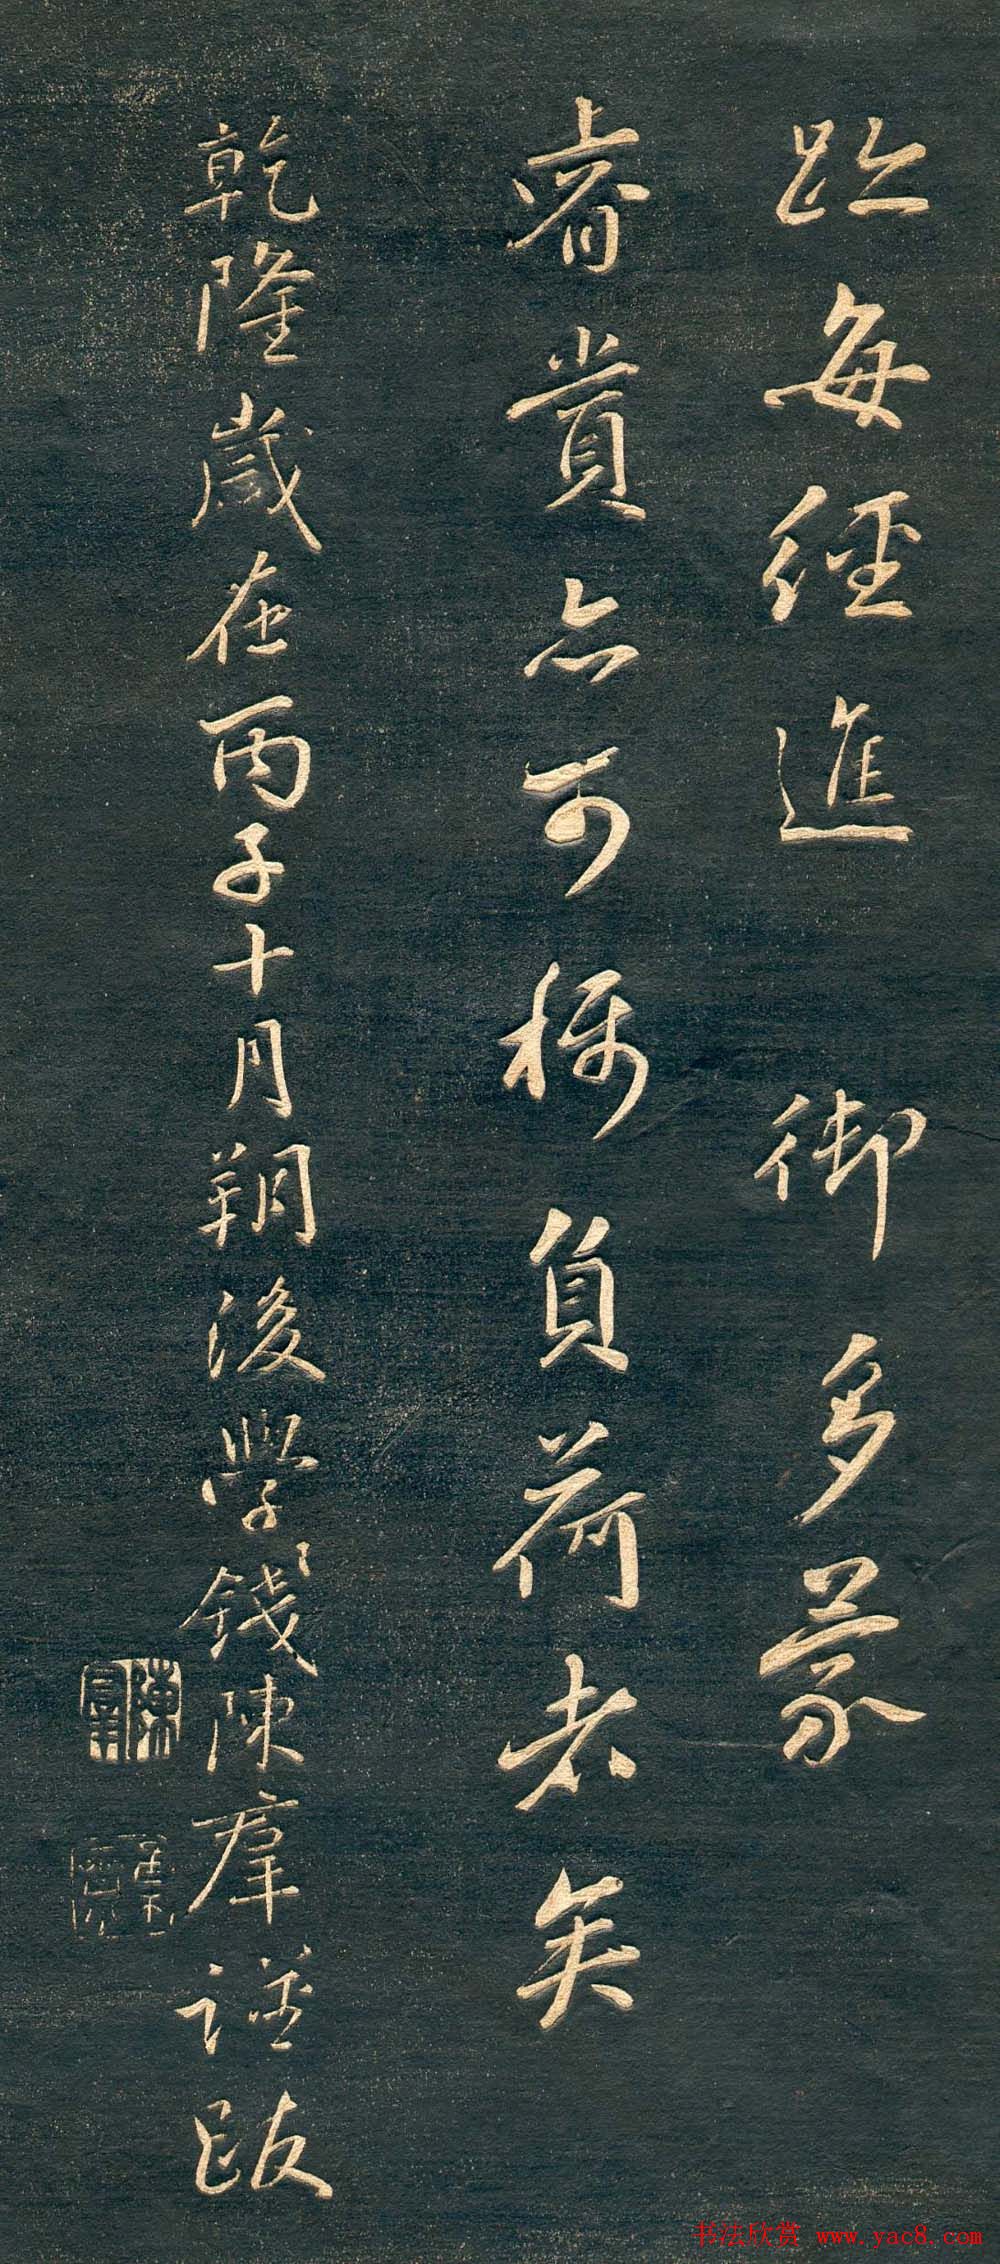 跡每經進 御多蒙
睿賞亦可稱負荷者矣
乾隆歲在丙子十月朔後學錢陳羣謹跋
陳羣
书法欣赏 www.yac8.com